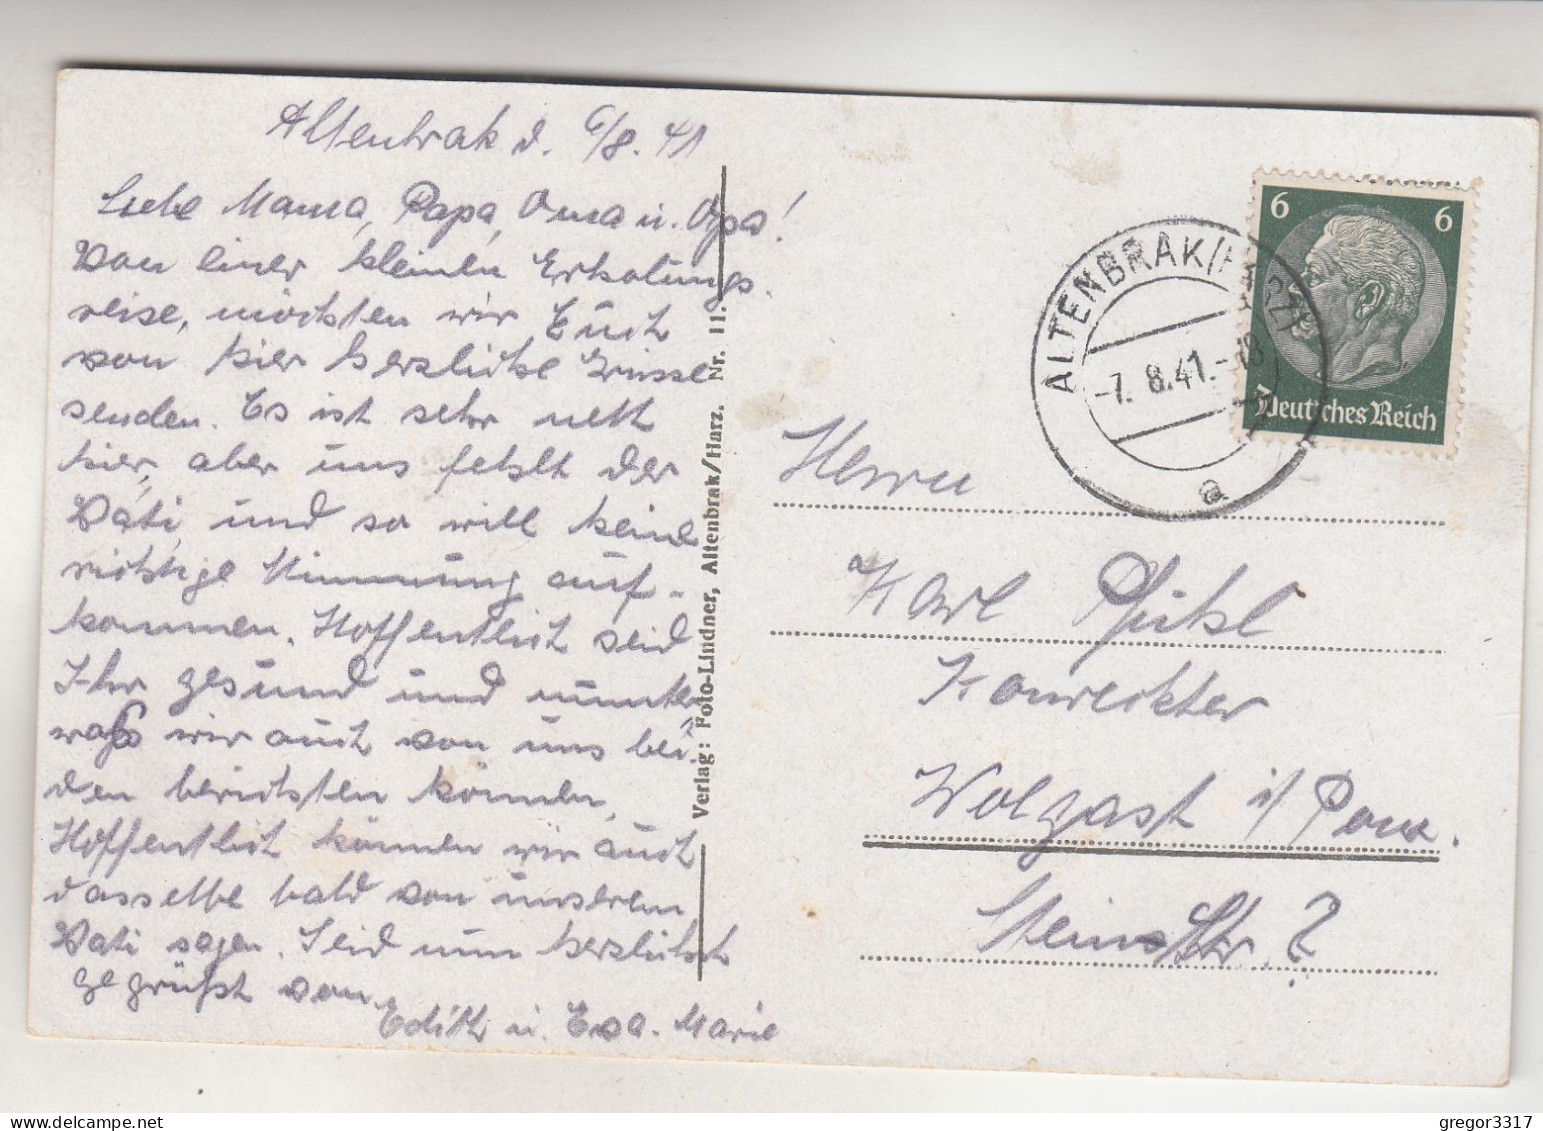 Altenbrak d. 6/8. 41
Liebe Mama, Papa, Oma u. Opa!
Von einer kleinen Erholungs-
reise, möchten wir Euch
von hier herzliche Grüsse
senden. Es ist sehr nett
hier, aber uns fehlt der
Vati, und so will keine
richtige Stimmung auf-
kommen. Hoffentlich seid
Ihr gesund und munter
was wir auch von uns bei-
den berichten können.
Hoffentlich können wir auch
dasselbe bald von unseren
Vati sagen. Seid nun herzlichst
gegrüßt von
Edith u. Eva-Marie
Verlag: Foto-Lindner, Altenbrak/Harz. Nr. 11.
ALTENBRAK/
-7. 8.41.-18
a
6 6
Deutsches Reich
Herrn
Karl
Wolgast i/ Pom.
Steinstr. 2
gregor3317
delcampe.net